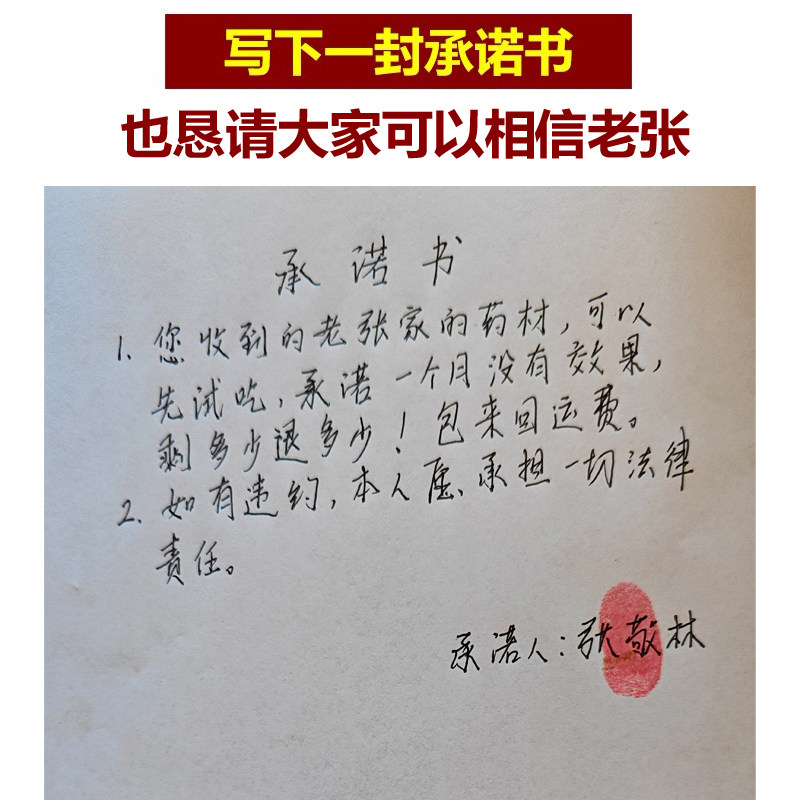 写下一封承诺书
也恳请大家可以相信老张
承诺书
1. 您收到的老张家的药材,可以
先试吃,承诺一个月没有效果,
剩多少退多少!包来回运费。
2. 如有违约,本人愿承担一切法律
责任。
承诺人:张敬林